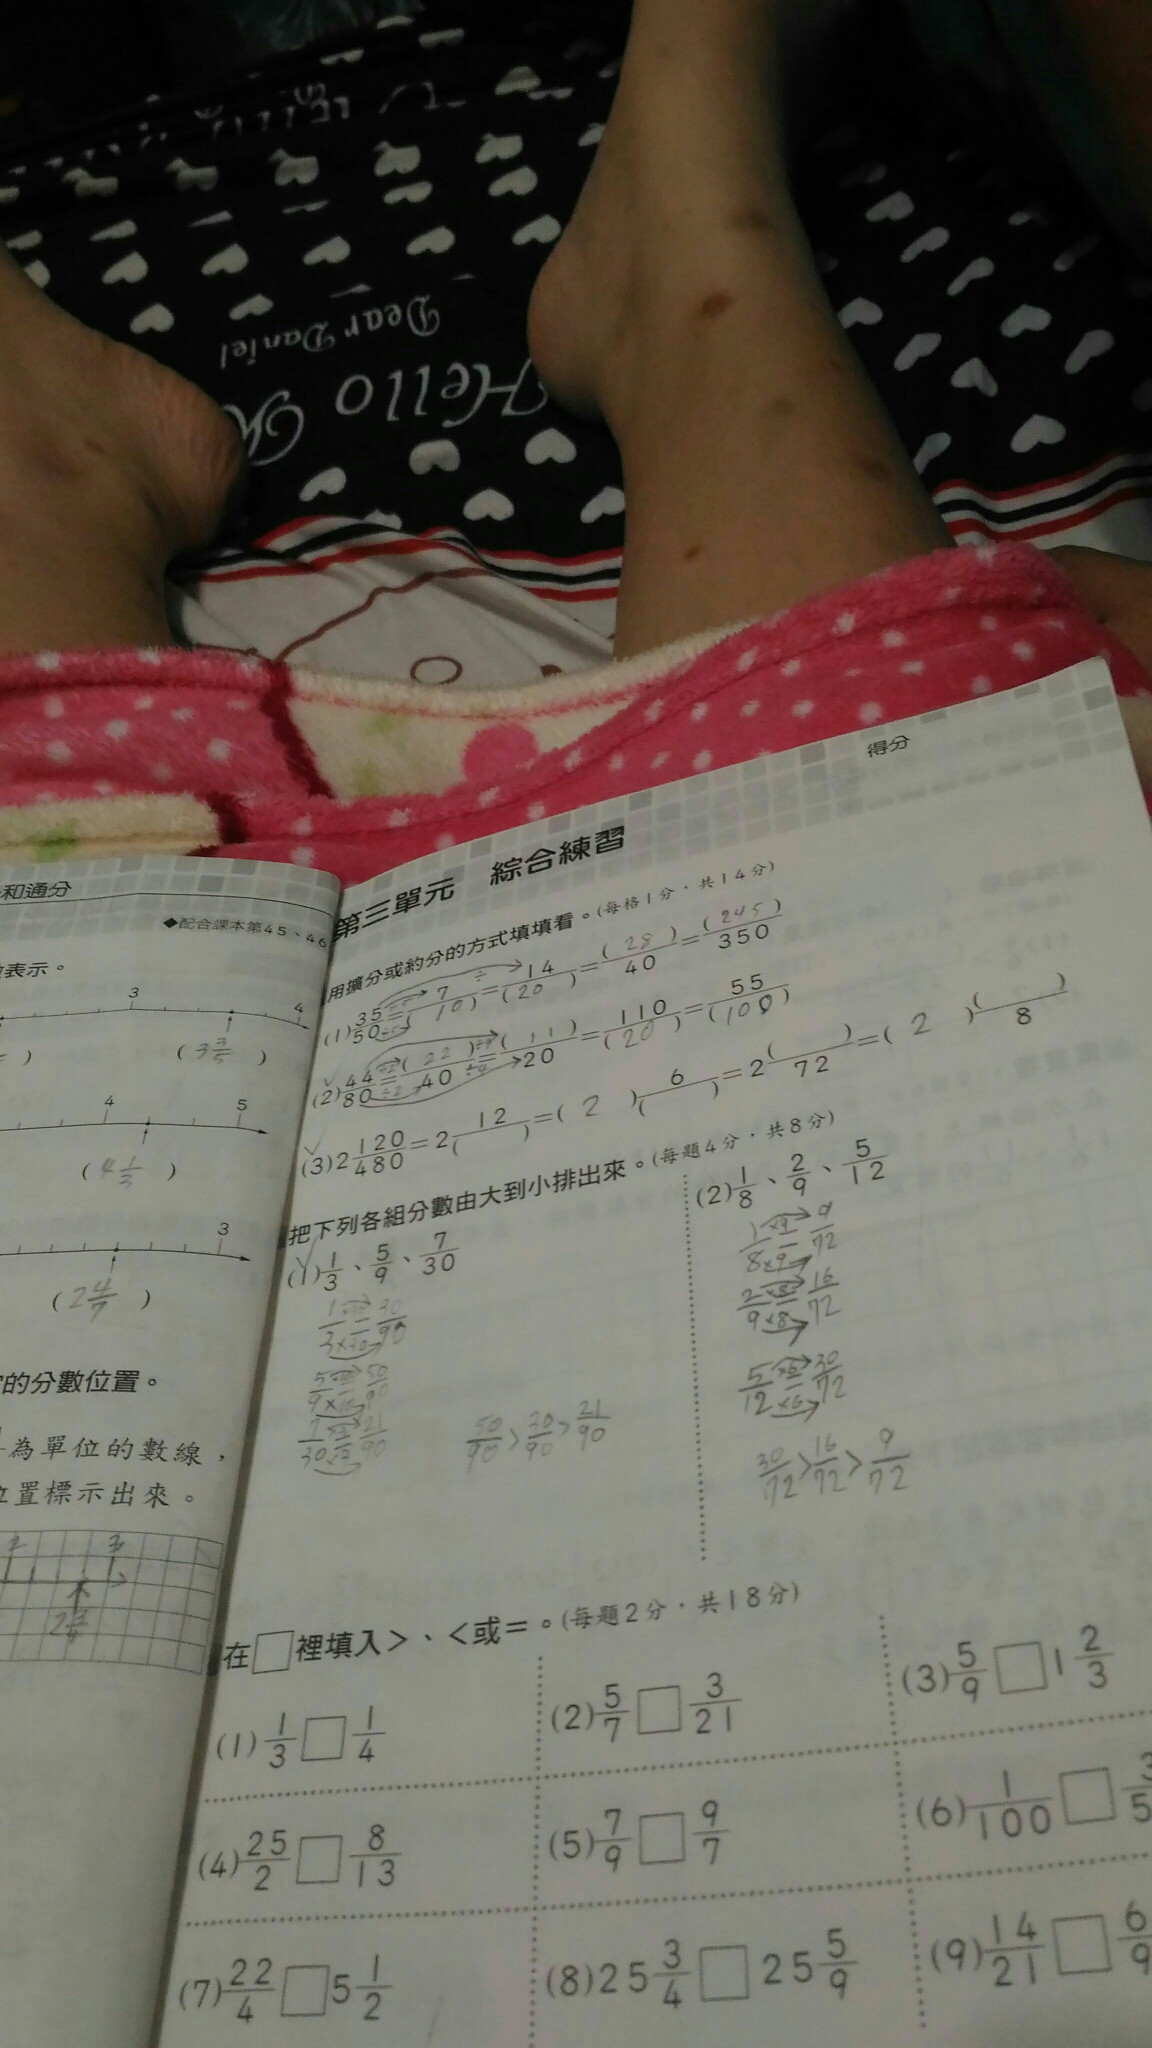 Hello K
Dear Daniel
和通分
◆配合課本第45、46
表示。
3 4
( 3 3/5 )
4 5
( 4 1/3 )
3
( 2 4/7 )
的分數位置。
為單位的數線，
位置標示出來。
2 3
2 3/4
得分
第三單元 綜合練習
用擴分或約分的方式填填看。(每格1分，共14分)
(1) 35/50 = 7/( 10 ) = 14/( 20 ) = ( 28 )/40 = ( 245 )/350
(2) 44/80 = ( 22 )/40 = ( 11 )/20 = 110/( 20 ) = 55/( 100 )
(3) 2 120/480 = 2 12/( ) = ( 2 ) 6/( ) = 2 ( )/72 = ( 2 ) ( )/8
把下列各組分數由大到小排出來。(每題4分，共8分)
(1) 1/3、5/9、7/30
1×30/3×30 = 30/90
5×10/9×10 = 50/90
7×3/30×3 = 21/90
50/90 > 30/90 > 21/90
(2) 1/8、2/9、5/12
1×9/8×9 = 9/72
2×8/9×8 = 16/72
5×6/12×6 = 30/72
30/72 > 16/72 > 9/72
在□裡填入＞、＜或＝。(每題2分，共18分)
(1) 1/3 □ 1/4
(2) 5/7 □ 3/21
(3) 5/9 □ 1 2/3
(4) 25/2 □ 8/13
(5) 7/9 □ 9/7
(6) 1/100 □ 3/5
(7) 22/4 □ 5 1/2
(8) 25 3/4 □ 25 5/9
(9) 14/21 □ 6/9